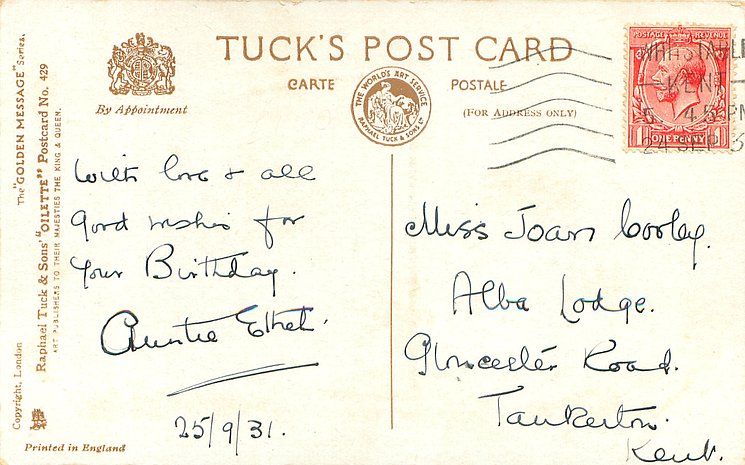 TUCK'S POST CARD
CARTE POSTALE
(FOR ADDRESS ONLY)
By Appointment
THE WORLD'S ART SERVICE
RAPHAEL TUCK & SONS LTD
POSTAGE REVENUE
1 ONE PENNY 1
WHITSTABLE
KENT
5 45 PM
24 SEP 3
The "GOLDEN MESSAGE" Series.
Raphael Tuck & Sons' "OILETTE" Postcard No. 429
ART PUBLISHERS TO THEIR MAJESTIES THE KING & QUEEN.
Copyright, London
With love & all
good wishes for
your Birthday.
Auntie Ethel.
25/9/31.
Miss Joan Corley.
Alba Lodge.
Gloucester Road.
Tankerton.
Kent.
Printed in England